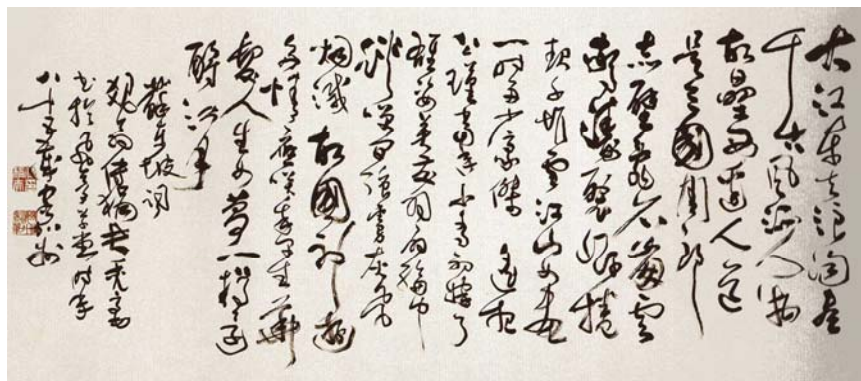 大江東去浪淘盡
千古風流人物
故壘西邊人道
是三國周郎
赤壁亂石崩雲
驚濤裂岸捲
起千堆雪江山如畫
一時多少豪傑 遙想
公瑾當年小喬初嫁了
雄姿英發羽扇綸巾
談笑間強虜灰飛
烟滅 故國神遊
多情應笑我早生華
髮人生如夢一樽還
酹江月
蘇東坡詞
書於 時年
八十